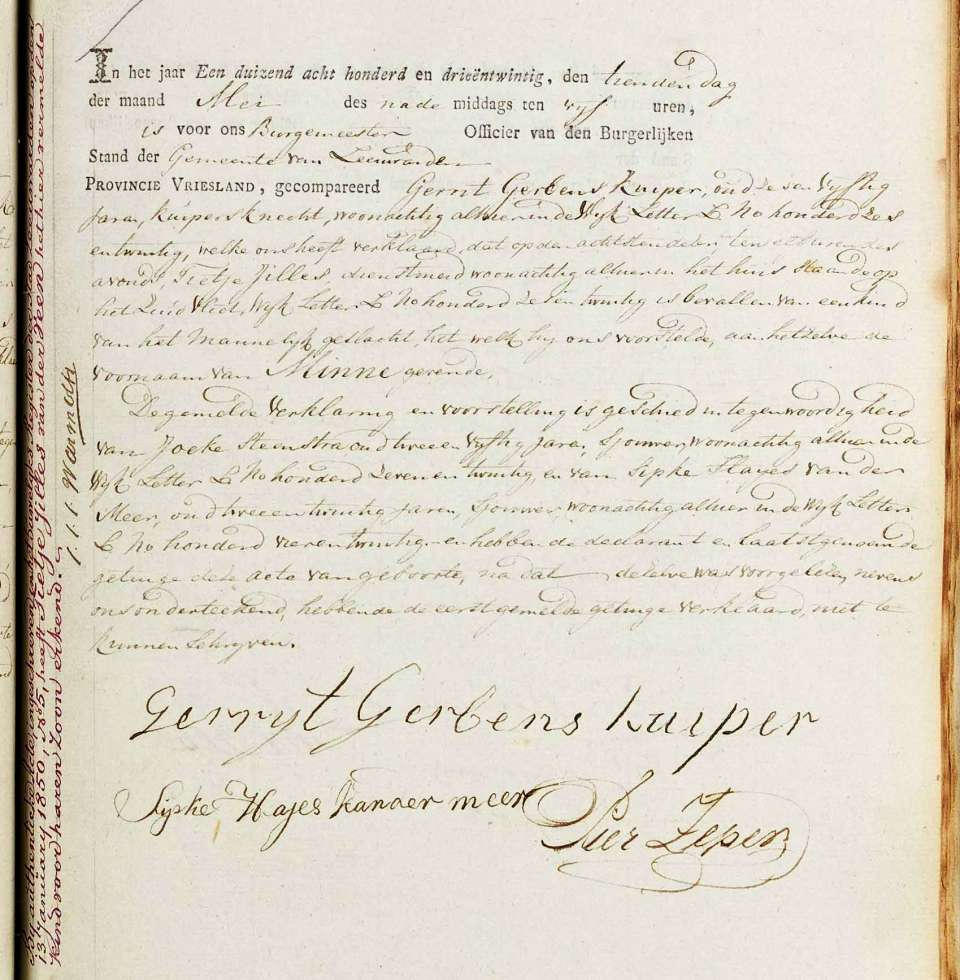 In het jaar Een duizend acht honderd en drieëntwintig, den tienden dag
der maand Mei des nade middags ten vyf uren,
is voor ons Burgemeester Officier van den Burgerlijken
Stand der Gemeente van Leeuwarden
PROVINCIE VRIESLAND, gecompareerd Gerrit Gerbens Kuiper, oud zes en vyftig
Jaren, kuipersknecht, woonachtig alhier in de Wyk Letter L No honderd zes
en twintig, welke ons heeft verklaard, dat op den achtsten dezer ten elf uren des
avonds, Tietje Jilles, dienstmeid woonachtig alhier in het huis staande op
het Zuid Vliet, Wyk Letter L No honderd zes en twintig is bevallen van een kind
van het Mannelyk geslacht, het welk hy ons voorstelde, aan hetzelve de
voornaam van Minne gevende.
De gemelde verklaring en voorstelling is geschied in tegenwoordigheid
van Joeke Steenstra oud twee en vyftig jaren, sjouwer, woonachtig alhier in de
Wyk Letter L No honderd zeven en twintig, en van Sipke Hayes van der
Meer, oud twee en twintig Jaren, sjouwer woonachtig alhier in de Wyk Letter
L No honderd vier en twintig en hebben de declarant en laatstgenoemde
getuige deze acte van geboorte, na dat dezelve was voorgelezen, nevens
ons onderteekend, hebbende de eerstgemelde getuige verklaard, niet te
kunnen schryven.
Gerryt Gerbens kuiper
Sipke Hajes van der meer
Pier Zeper
13 January 1850, heeft Tietje Jilles van der Veen het hiervermelde
kind voor haren zoon erkend.